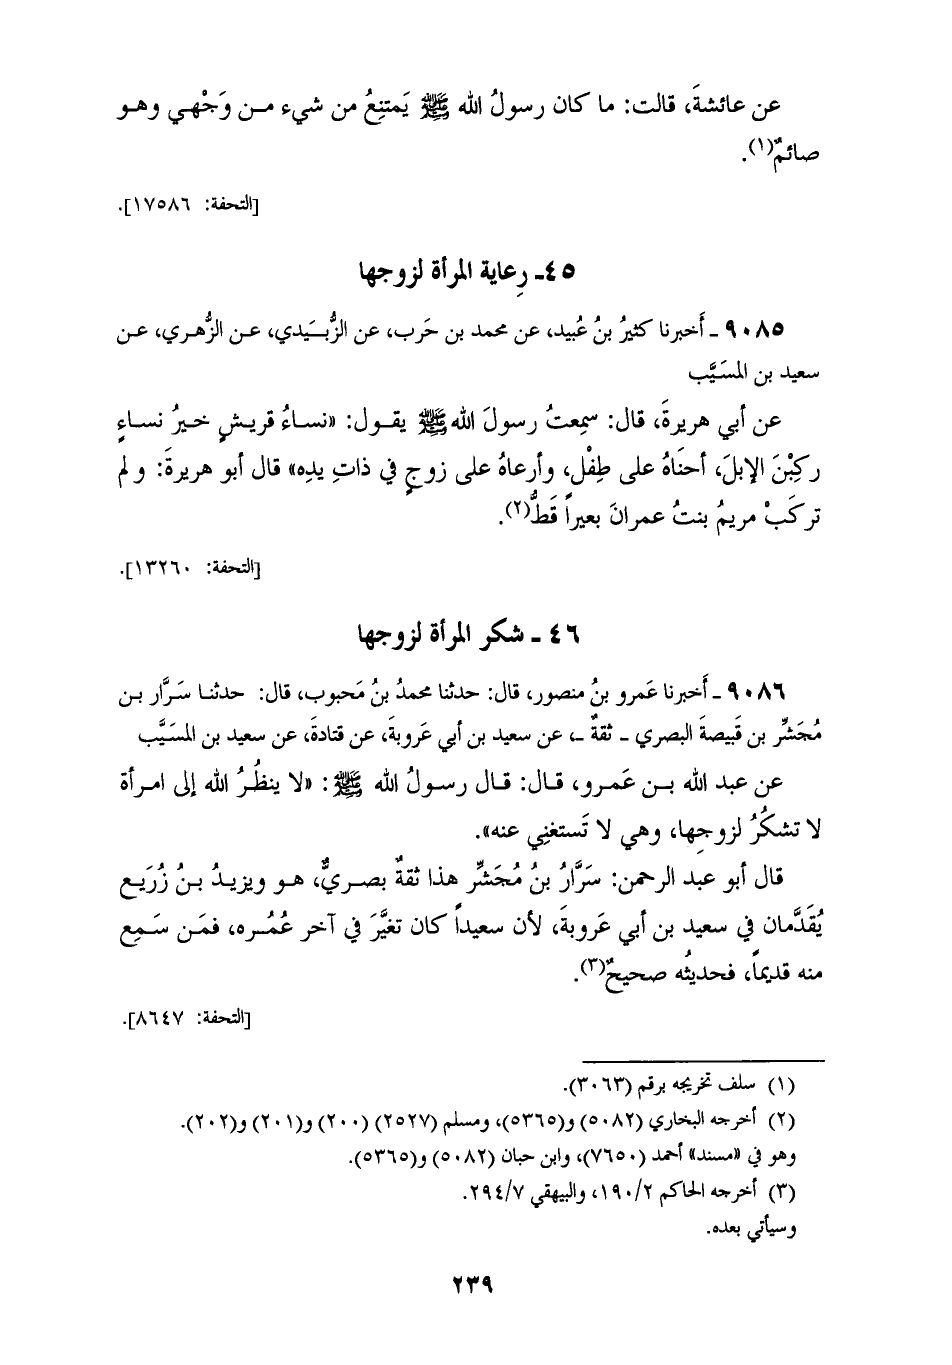 عن عائشةَ، قالت: ما كان رسولُ الله ﷺ يَمتنِعُ من شيء مـن وَجْهـي وهـو
صائمٌ(١).
[التحفة: ١٧٥٨٦].
٤٥ـ رِعاية المرأة لزوجها
٩٠٨٥ ـ أَخبرنا كثيرُ بنُ عُبيد، عن محمد بن حَرب، عن الزُّبـَيدي، عـن الزُّهـري، عـن
سعيد بن المسَيَّب
عن أبي هريرةَ، قال: سمِعتُ رسولَ الله ﷺ يقـول: «نسـاءُ قريـشٍ خـيرُ نسـاءٍ
ركِبْنَ الإبلَ، أحنَاهُ على طِفْلٍ، وأرعاهُ على زوجٍ في ذاتِ يدِه» قال أبو هريرةَ: و لم
تركَبْ مريمُ بنتُ عمرانَ بعيراً قَطُّ(٢).
[التحفة: ١٣٢٦٠].
٤٦ ـ شكر المرأة لزوجها
٩٠٨٦ ـ أَخبرنا عَمرو بنُ منصور، قال: حدثنا محمدُ بنُ مَحبوب، قال: حدثنـا سَرَّار بـن
مُجَشِّر بن قَبيصةَ البصري ـ ثقةٌ ـ، عن سعيد بن أبي عَروبةَ، عن قتادةَ، عن سعيد بن المسَيَّب
عن عبد الله بـن عَمـرو، قـال: قـال رسـولُ الله ﷺ: «لا ينظُرُ الله إلى امـرأة
لا تشكُرُ لزوجِها، وهي لا تَستغنِي عنه».
قال أبو عبد الرحمن: سَرَّارُ بنُ مُجَشِّر هذا ثقةٌ بصـريٌّ، هـو ويزيـدُ بـنُ زُرَيـع
يُقَدَّمان في سعيد بن أبي عَروبةَ، لأن سعيداً كان تغيَّرَ في آخر عُمُـره، فمَـن سَـمِع
منه قديماً، فحديثُه صحيحٌ(٣).
[التحفة: ٨٦٤٧].
(١) سلف تخريجه برقم (٣٠٦٣).
(٢) أخرجه البخاري (٥٠٨٢) و(٥٣٦٥)، ومسلم (٢٥٢٧) (٢٠٠) و(٢٠١) و(٢٠٢).
وهو في «مسند» أحمد (٧٦٥٠)، وابن حبان (٥٠٨٢) و(٥٣٦٥).
(٣) أخرجه الحاكم ١٩٠/٢، والبيهقي ٢٩٤/٧.
وسيأتي بعده.
٢٣٩